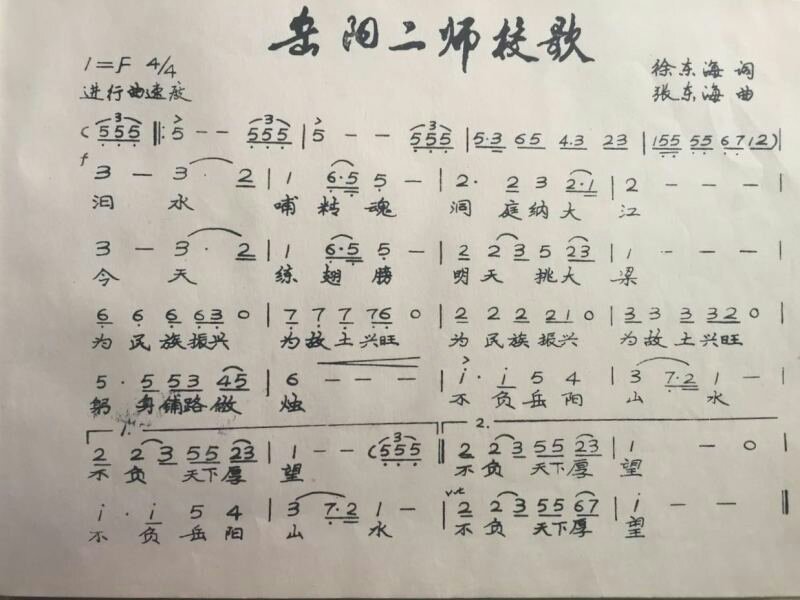 岳阳二师校歌
1=F 4/4 徐东海 词
进行曲速度 张东海 曲
(555 ‖: 5 - - 555 | 5 - - 555 | 5·3 65 4·3 23 | 155 55 67 12)|
f
3 - 3· 2 | 1 6·5 5 - | 2· 2 3 2·1 | 2 - - - |
汨 水 哺 精 魂 洞 庭 纳 大 江
3 - 3· 2 | 1 6·5 5 - | 2 2 3 5 23 | 1 - - - |
今 天 练 翅 膀 明 天 挑 大 梁
6 6 6 63 0 | 7 7 7 76 0 | 2 2 2 21 0 | 3 3 3 32 0 |
为 民 族 振 兴 为 故 土 兴 旺 为 民 族 振 兴 为 故 土 兴 旺
5· 5 53 45 | 6 - - - | i· i 5 4 | 3 7·2 1 - |
躬 身 铺 路 做 烛 不 负 岳 阳 山 水
1. 2.
2 2 3 55 23 | 1 - - (555 :‖ 2 2 3 55 23 | 1 - - 0 |
不 负 天 下 厚 望 不 负 天 下 厚 望
i· i 5 4 | 3 7·2 1 - | 2 2 3 55 67 | i - - ‖
不 负 岳 阳 山 水 不 负 天 下 厚 望